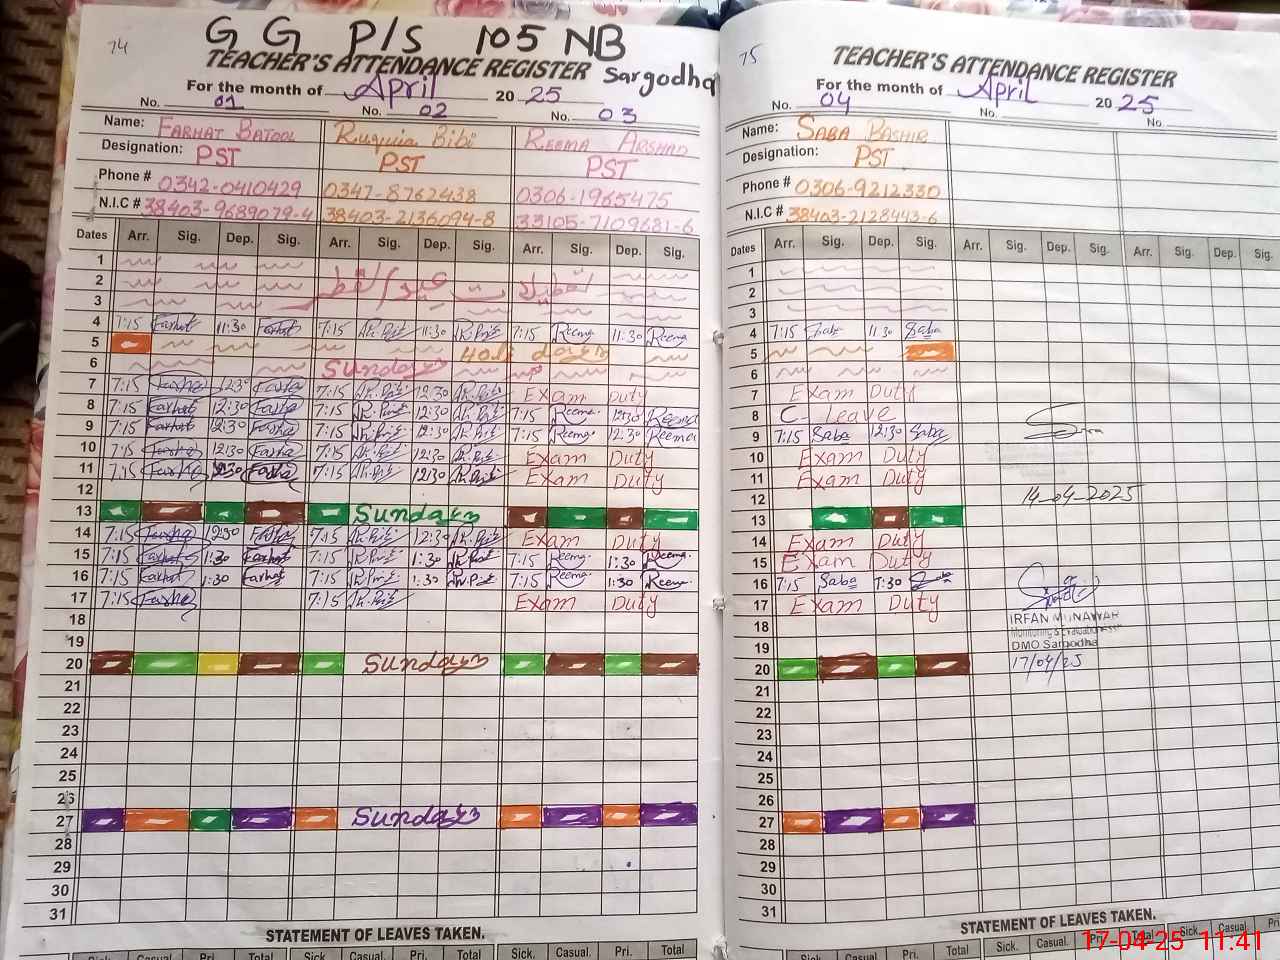 74
G G P/S 105 NB
TEACHER'S ATTENDANCE REGISTER Sargodha
For the month of April 2025
No. 01 No. 02 No. 03
Name: FARHAT BATOOL Ruquia Bibi REEMA ARSHAD
Designation: PST PST PST
Phone # 0342-0410429 0347-8762438 0306-1965475
N.I.C # 38403-9689079-4 38403-2136094-8 33105-7109681-6
Dates Arr. Sig. Dep. Sig. Arr. Sig. Dep. Sig. Arr. Sig. Dep. Sig.
1
2 عید الفطر
3
4 7:15 Farhat 11:30 Farhat 7:15 11:30 7:15 Reema 11:30 Reema
5 Holi days
6 Sunday
7 7:15 Farhat 12:30 Farhat 7:15 12:30 Exam Duty
8 7:15 Farhat 12:30 Farhat 7:15 12:30 7:15 Reema 12:30 Reema
9 7:15 Farhat 12:30 Farhat 7:15 12:30 7:15 Reema 12:30 Reema
10 7:15 Farhat 12:30 Farhat 7:15 12:30 Exam Duty
11 7:15 Farhat 12:30 Farhat 7:15 12:30 Exam Duty
12
13 Sunday
14 7:15 Farhat 12:30 Farhat 7:15 12:30 Exam Duty
15 7:15 Farhat 1:30 Farhat 7:15 1:30 7:15 Reema 1:30 Reema
16 7:15 Farhat 1:30 Farhat 7:15 1:30 7:15 Reema 1:30 Reema
17 7:15 Farhat 7:15 Exam Duty
18
19
20 Sunday
21
22
23
24
25
26
27 Sunday
28
29
30
31
STATEMENT OF LEAVES TAKEN.
Sick. Casual. Pri. Total Sick. Casual. Pri. Total Sick. Casual. Pri. Total
75
TEACHER'S ATTENDANCE REGISTER
For the month of April 2025
No. 04 No. No.
Name: SABA BASHIR
Designation: PST
Phone # 0306-9212330
N.I.C # 38403-2128443-6
Dates Arr. Sig. Dep. Sig. Arr. Sig. Dep. Sig. Arr. Sig. Dep. Sig.
1
2
3
4 7:15 Saba 11:30 Saba
5
6
7 Exam Duty
8 C- leave
9 7:15 Saba 12:30 Saba
10 Exam Duty
11 Exam Duty
12 14-04-2025
13
14 Exam Duty
15 Exam Duty
16 7:15 Saba 1:30 Saba
17 Exam Duty
IRFAN MUNAWAR
18 Monitoring & Evaluation
19 DMO Sargodha
20 17/04/25
21
22
23
24
25
26
27
28
29
30
31
STATEMENT OF LEAVES TAKEN.
Sick. Casual. Pri. Total Sick. Casual. Pri. Total Sick. Casual. Pri.
17-04-25 11.41